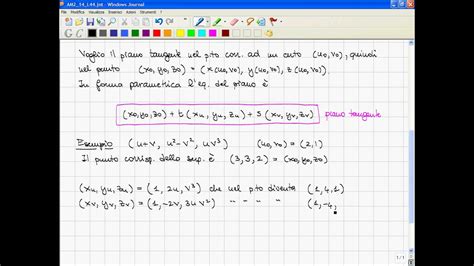 AM2_14_L44.jnt - Windows Journal
Voglio il piano tangente nel p.to corr. ad un certo (u0, v0), quindi
nel punto (x0, y0, z0) = (x(u0, v0), y(u0, v0), z(u0, v0)).
In forma parametrica l'eq. del piano è
(x0, y0, z0) + t (xu, yu, zu) + s (xv, yv, zv) piano tangente
Esempio (u+v, u²-v², uv³) (u0, v0) = (2, 1)
Il punto corrisp. della sup. è (3, 3, 2) = (x0, y0, z0)
(xu, yu, zu) = (1, 2u, v³) che nel p.to diventa (1, 4, 1)
(xv, yv, zv) = (1, -2v, 3uv²) " " " " (1, -4,
1 / 1